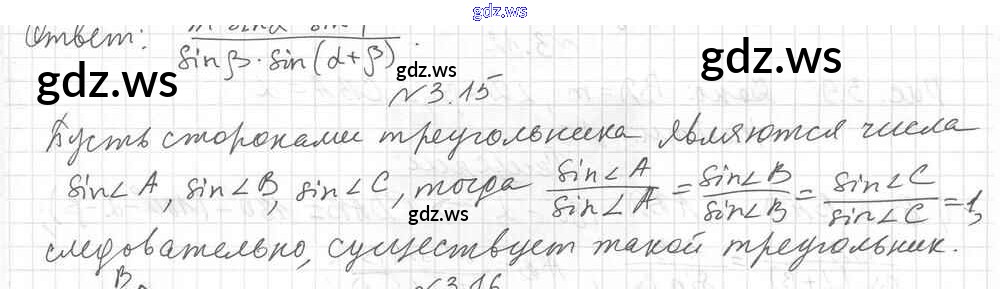 gdz.ws
Ответ: sinβ·sin(α+β).
gdz.ws gdz.ws gdz.ws
№3.15
Пусть сторонами треугольника являются числа
sin∠A, sin∠B, sin∠C, тогда sin∠A/sin∠A = sin∠B/sin∠B = sin∠C/sin∠C = 1,
gdz.ws
следовательно, существует такой треугольник.
B №3.16